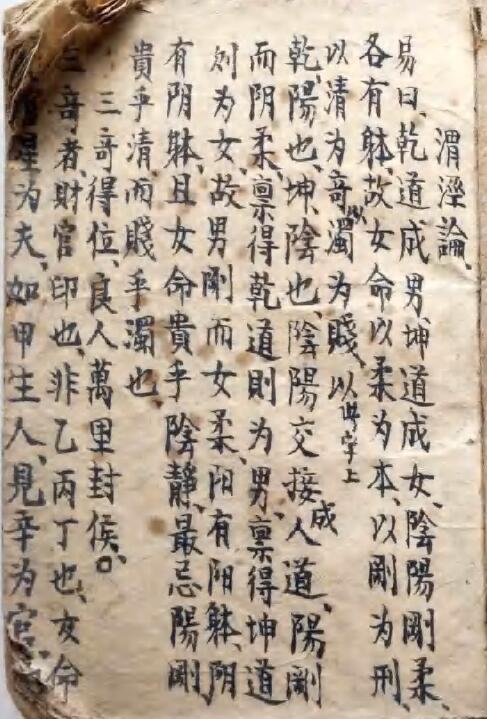 渭涇論、
易曰、乾道成男、坤道成女、陰陽剛柔、
各有躰、故女命以柔为本、以剛为刑、
以清为奇、以濁为賤、以此字上
乾陽也、坤陰也、陰陽交接成人道、陽剛
而阴柔、禀得乾道則为男、禀得坤道
则为女、故男剛而女柔、阳有阳躰、阴
有阴躰、且女命貴乎陰静、最忌陽剛、
貴乎清、而賤乎濁也、
三奇得位、良人萬里封侯、
三奇者、財官印也、非乙丙丁也、女命
星为夫、如甲生人、見辛为官、